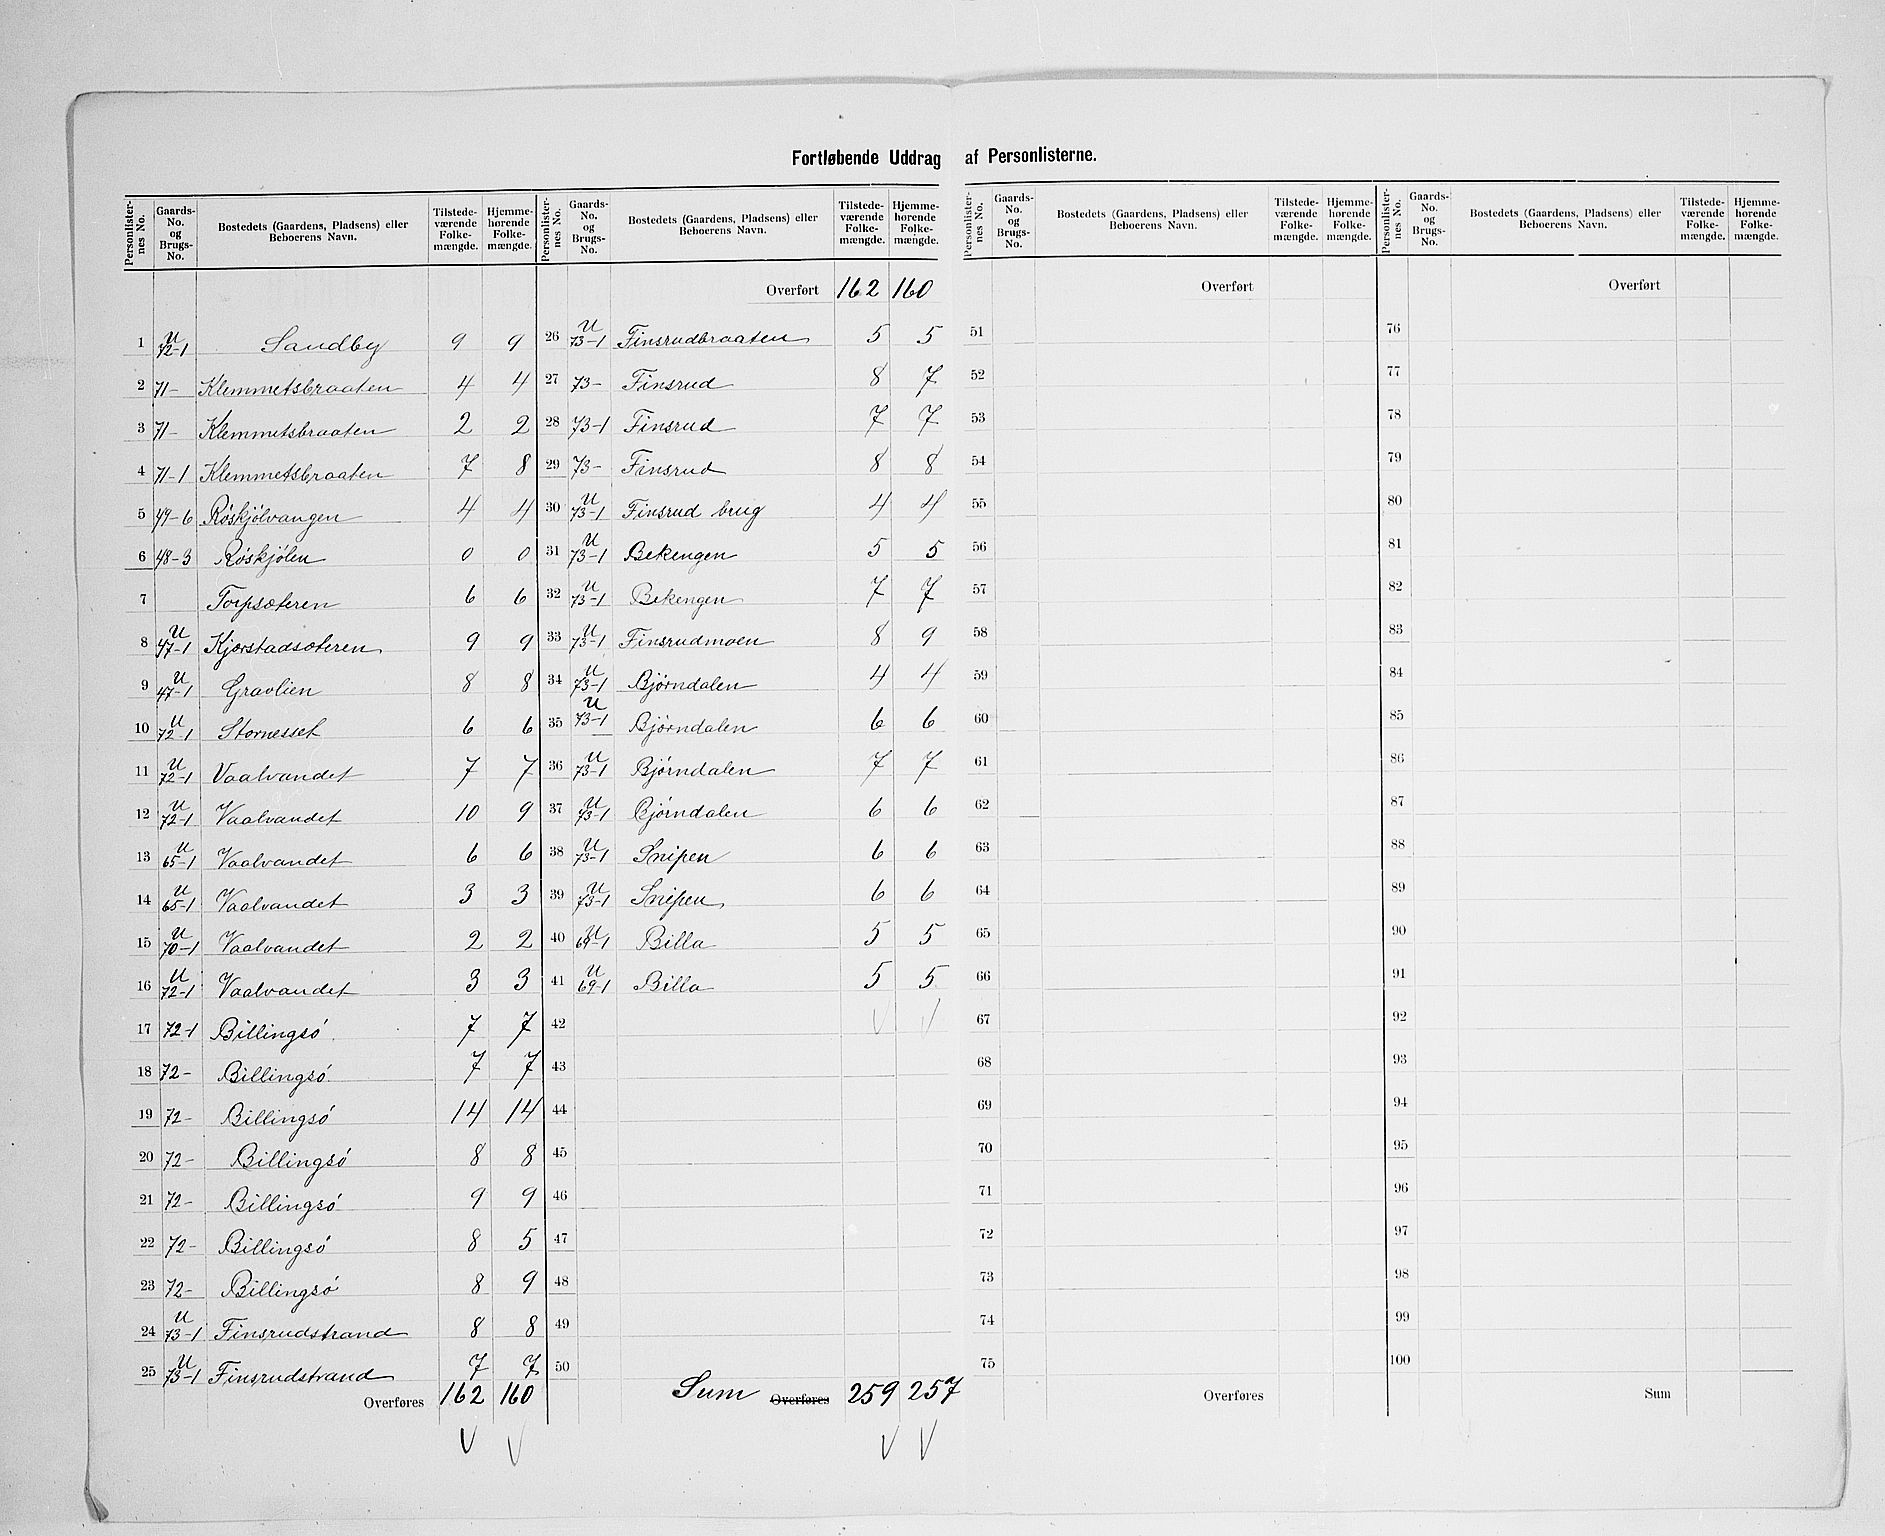 Fortløbende Uddrag af Personlisterne.
Personlisternes No. Gaards-No. og Brugs-No. Bostedets (Gaardens, Pladsens) eller Beboerens Navn. Tilstedeværende Folkemængde. Hjemmehørende Folkemængde.
1 U 72-1 Sandby 9 9
2 71- Klemmetsbraaten 4 4
3 71- Klemmetsbraaten 2 2
4 71-1 Klemmetsbraaten 7 8
5 49-6 Røskjølvangen 4 4
6 48-3 Røskjølen 0 0
7 Torpsæteren 6 6
8 U 47-1 Kjærstadsæteren 9 9
9 U 47-1 Gravlien 8 8
10 U 72-1 Stornesset 6 6
11 U 72-1 Vaalvandet 7 7
12 U 72-1 Vaalvandet 10 9
13 U 65-1 Vaalvandet 6 6
14 U 65-1 Vaalvandet 3 3
15 U 70-1 Vaalvandet 2 2
16 U 72-1 Vaalvandet 3 3
17 72-1 Billingsö 7 7
18 72- Billingsö 7 7
19 72- Billingsö 14 14
20 72- Billingsö 8 8
21 72- Billingsö 9 9
22 72- Billingsö 8 5
23 72- Billingsö 8 9
24 U 73-1 Finsrudstrand 8 8
25 U 73-1 Finsrudstrand 7 7
Overføres 162 160
V V
Personlisternes No. Gaards-No. og Brugs-No. Bostedets (Gaardens, Pladsens) eller Beboerens Navn. Tilstedeværende Folkemængde. Hjemmehørende Folkemængde.
Overført 162 160
26 U 73-1 Finsrudbraaten 5 5
27 73- Finsrud 8 7
28 73-1 Finsrud 7 7
29 73- Finsrud 8 8
30 U 73-1 Finsrud brug 4 4
31 U 73-1 Bekengen 5 5
32 U 73-1 Bekengen 7 7
33 U 73-1 Finsrudmoen 8 9
34 U 73-1 Bjørndalen 4 4
35 U 73-1 Bjørndalen 6 6
36 U 73-1 Bjørndalen 7 7
37 U 73-1 Bjørndalen 6 6
38 U 73-1 Snipen 6 6
39 U 73-1 Snipen 6 6
40 U 69-1 Billa 5 5
41 U 69-1 Billa 5 5
42 V V
43
44
45
46
47
48
49
50
Sum Overføres 259 257
V V
Personlisternes No. Gaards-No. og Brugs-No. Bostedets (Gaardens, Pladsens) eller Beboerens Navn. Tilstedeværende Folkemængde. Hjemmehørende Folkemængde.
Overført
51
52
53
54
55
56
57
58
59
60
61
62
63
64
65
66
67
68
69
70
71
72
73
74
75
Overføres
Personlisternes No. Gaards-No. og Brugs-No. Bostedets (Gaardens, Pladsens) eller Beboerens Navn. Tilstedeværende Folkemængde. Hjemmehørende Folkemængde.
Overført
76
77
78
79
80
81
82
83
84
85
86
87
88
89
90
91
92
93
94
95
96
97
98
99
100
Sum